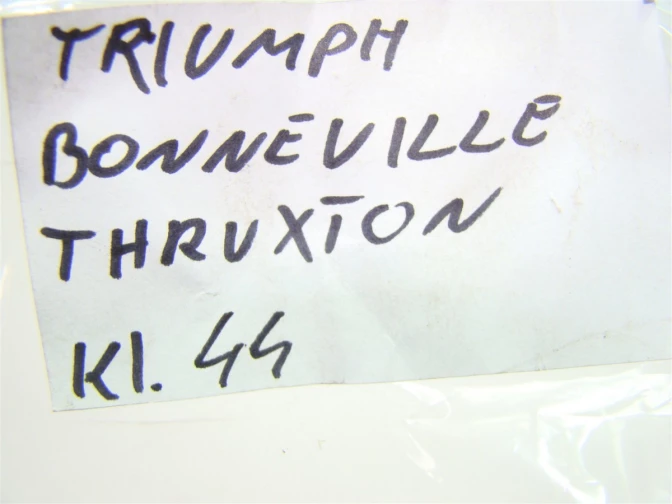 TRIUMPH
BONNEVILLE
THRUXTON
Kl. 44